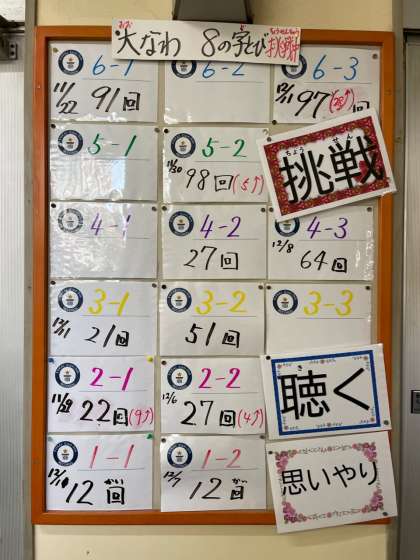 大なわ 8の字とび 挑戦中
おお じ ちょうせんちゅう
6-1
11/22 91回
6-2
6-3
12/11 97回(28↑)
5-1
5-2
11/30 98回(5↑)
挑戦
ちょう せん
4-1
4-2
27回
4-3
12/8 64回
3-1
12/11 21回
3-2
51回
3-3
2-1
11/28 22回(9↑)
2-2
12/6 27回(4↑)
聴く
き
1-1
12/10 12回
かい
1-2
12/7 12回
かい
思いやり